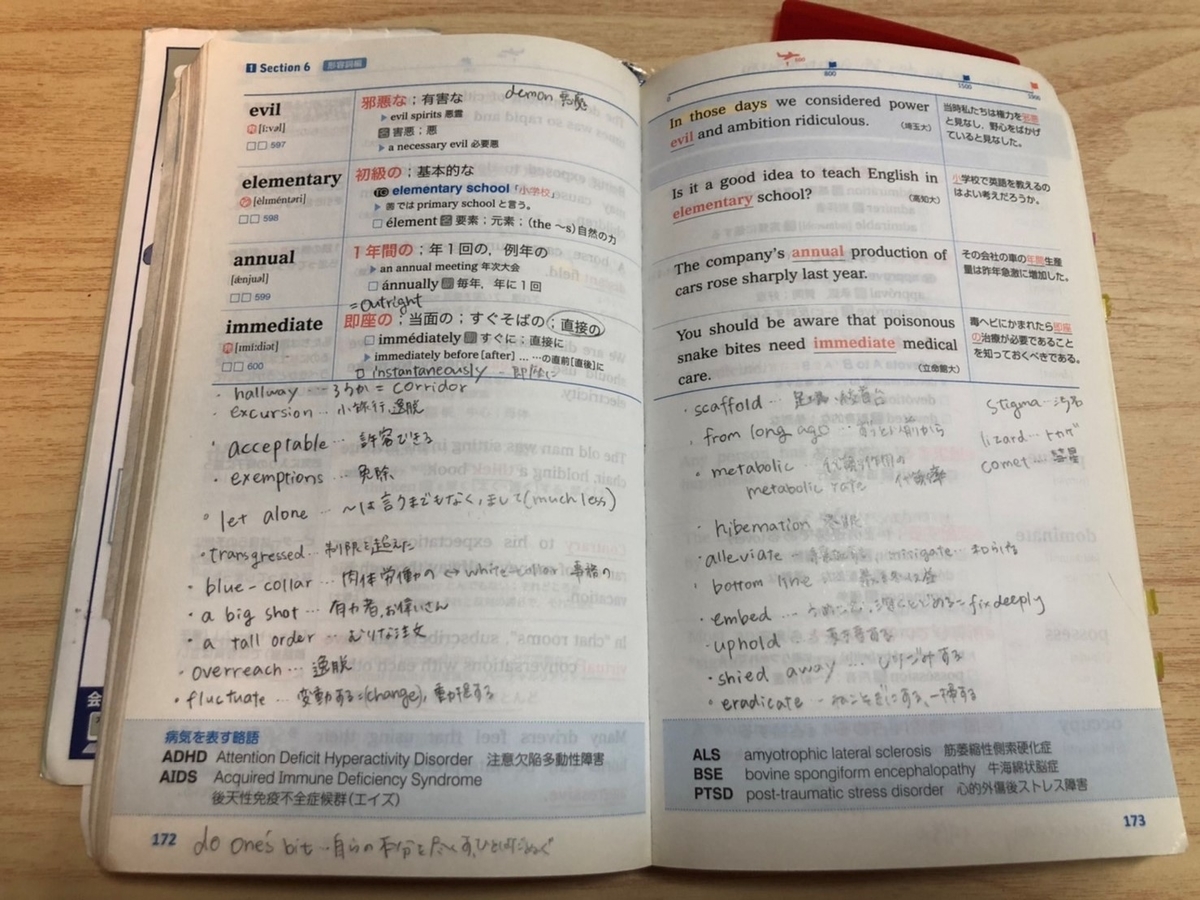 Section 6 形容詞編
demon 悪魔
evil
[í:vəl]
597
邪悪な；有害な
▶ evil spirits 悪霊
名 害悪；悪
▶ a necessary evil 必要悪
elementary
[èlɪméntəri]
598
初級の；基本的な
TG elementary school「小学校」
▶ 英では primary school と言う。
□ élement 名 要素；元素；(the ～s)自然の力
annual
[ǽnjuəl]
599
1年間の；年1回の，例年の
▶ an annual meeting 年次大会
□ ánnually 副 毎年，年に1回
=outright
immediate
[ɪmí:diət]
600
即座の；当面の；すぐそばの；直接の
□ immédiately 副 すぐに；直接に
▶ immediately before[after] ... …の直前[直後]に
□ instantaneously … 即座に
・hallway … ろうか = corridor
・excursion … 小旅行,逸脱
・acceptable … 許容できる
・exemptions … 免除
・let alone … 〜は言うまでもなく,まして(much less)
・transgressed… 制限を超えた
・blue-collar … 肉体労働の ↔ white-collar 事務の
・a big shot … 有力者,お偉いさん
・a tall order … むりな注文
・overreach … 逸脱
・fluctuate … 変動する=(change),動揺する
病気を表す略語
ADHD Attention Deficit Hyperactivity Disorder 注意欠陥多動性障害
AIDS Acquired Immune Deficiency Syndrome
後天性免疫不全症候群(エイズ)
172
do one's bit … 自らの本分を尽くす,ひとはだぬぐ
0 600 1500 1900
In those days we considered power
evil and ambition ridiculous.
(埼玉大)
当時私たちは権力を邪悪
と見なし，野心をばかげ
ていると見なした。
Is it a good idea to teach English in
elementary school?
(高知大)
小学校で英語を教えるの
はよい考えだろうか。
The company's annual production of
cars rose sharply last year.
その会社の車の年間生産
量は昨年急激に増加した。
You should be aware that poisonous
snake bites need immediate medical
care.
(立命館大)
毒ヘビにかまれたら即座
の治療が必要であること
を知っておくべきである。
・scaffold … 足場
stigma … 汚名
・from long ago … 前から
lizard … トカゲ
・metabolic … 代謝作用の
comet … 彗星
metabolic rate 代謝率
・hibernation 冬眠
・alleviate … mitigate … 和らげる
・bottom line …
・embed … うめこむ, = fix deeply
・uphold …
・shied away … しりごみする
・eradicate … ねこそぎにする,一掃する
ALS amyotrophic lateral sclerosis 筋萎縮性側索硬化症
BSE bovine spongiform encephalopathy 牛海綿状脳症
PTSD post-traumatic stress disorder 心的外傷後ストレス障害
173